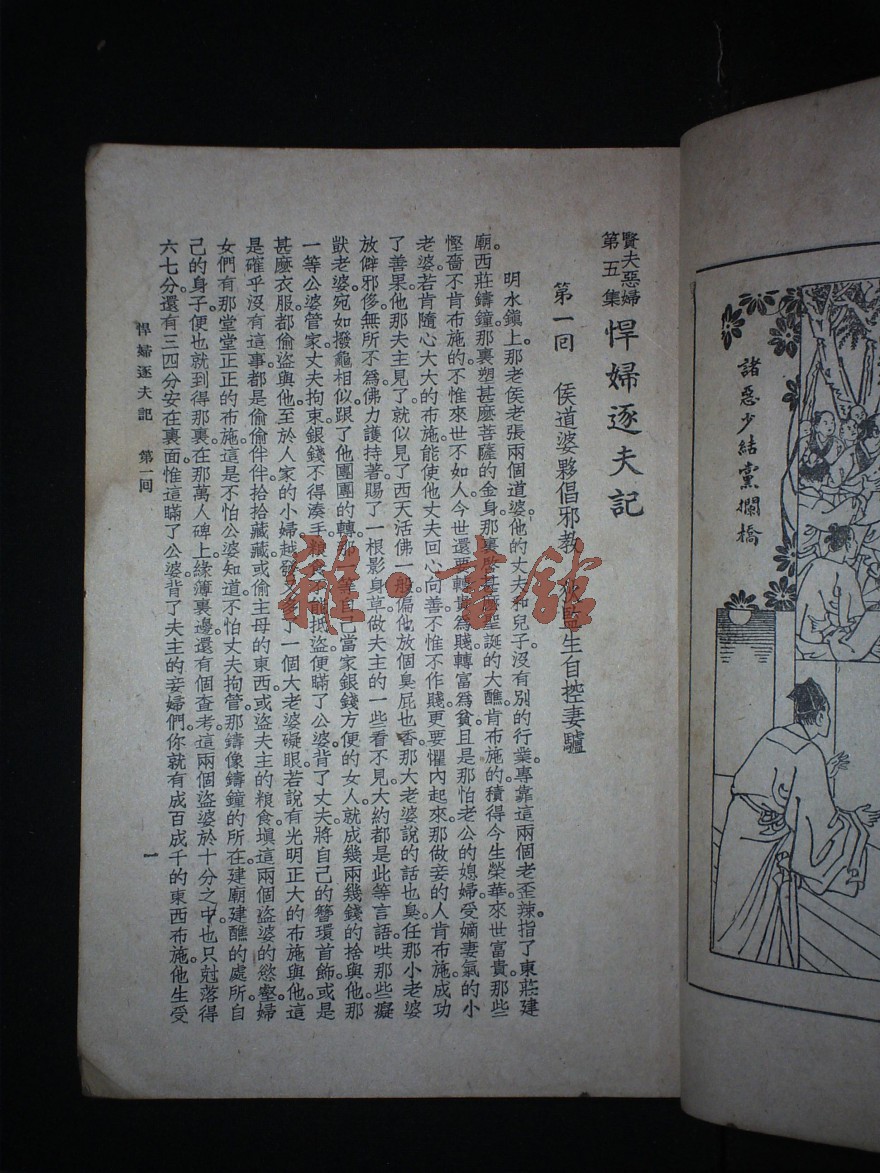 諸惡少結黨攔橋
賢夫惡婦
第五集
悍婦逐夫記
第一回　侯道婆夥倡邪教　狄監生自控妻驢
明水鎮上那老侯老張兩個道婆他的丈夫和兒子沒有別的行業。專靠這兩個老歪辣。指了東莊建
廟。西莊鑄鐘。那裏塑甚麼菩薩的金身。那裏甚麼聖誕的大醮。肯布施的。積得今生榮華。來世富貴。那些
慳嗇不肯布施的。不惟來世不如人。今世還要轉貴為賤。轉富爲貧。且是那怕老公的媳婦。受嫡妻氣的小
老婆。若肯隨心大大的布施。能使他丈夫回心向善。不惟不作賤。更要懼內起來。那做妾的人肯布施。成功
了善果。他那夫主見了就似見了西天活佛一般。偏他放個臭屁也香。那大老婆說的話也臭。任那小老婆
放僻邪侈。無所不爲。佛力護持著。賜了一根影身草。做夫主的一些看不見。大約都是此等言語。哄那些癡
獃老婆。宛如撥龜相似。跟了他團團的轉。那一等自己當家銀錢方便的女人。就成幾兩幾錢的捨與他。那
一等公婆管家丈夫拘束。銀錢不得湊手。糧米不能抵盜。便瞞了公婆。背了丈夫。將自己的簪環首飾。或是
甚麼衣服都偷盜與他。至於人家的小婦越發又多了一個大老婆礙眼。若說有光明正大的布施與他。這
是確乎沒有這事。都是偷偷伴伴拾拾藏藏。或偷主母的東西。或盜夫主的粮食。塡這兩個盜婆的慾壑。婦
女們有那堂堂正正的布施。這是不怕公婆知道。不怕丈夫拘管。那鑄像鑄鐘的所在。建廟建醮的處所。自
己的身子便也就到得那裏。在那萬人碑上。緣簿裏邊。還有個查考。這兩個盜婆於十分之中。也只尅落得
六七分。還有三四分安在裏面。惟這瞞了公婆。背了夫主的妾婦們。你就有成百成千的東西布施。他生受
悍婦逐夫記　第一回　一
雜·書館